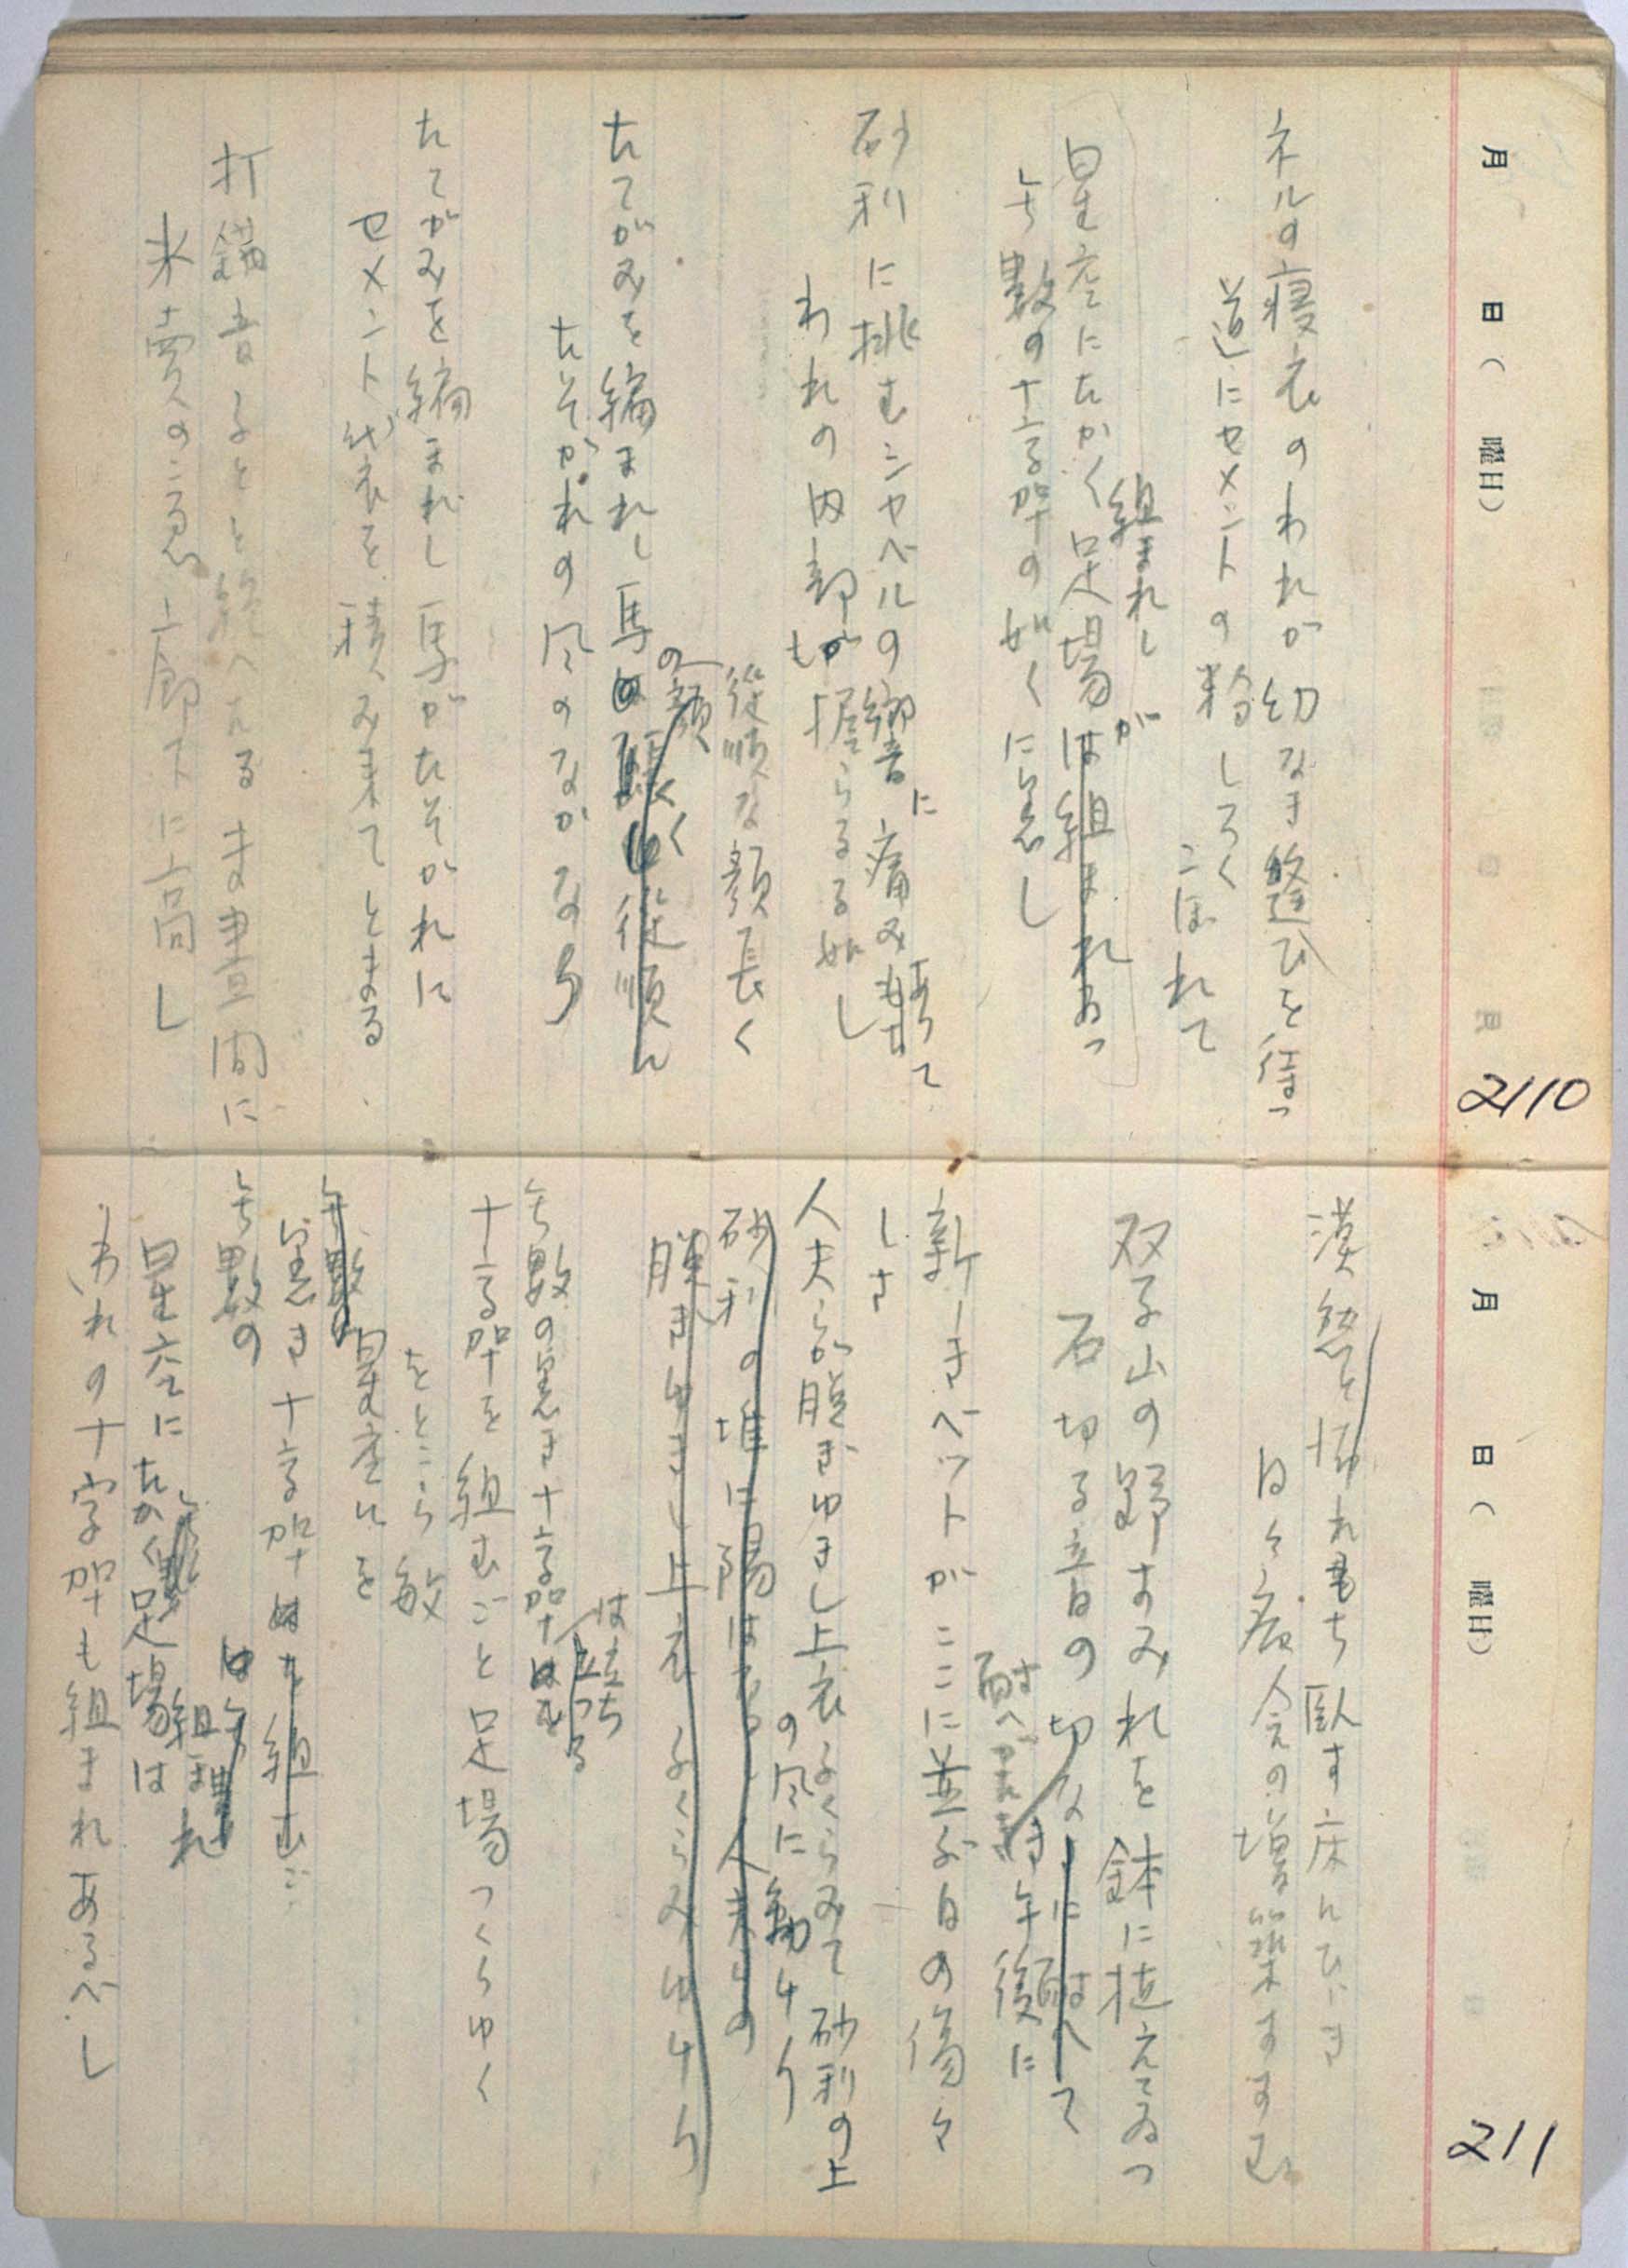 月 日( 曜日)
2110
ネルの寝衣のわれが幼なき縫ひを待つ
道にセメントの粉しろく
こぼれて
組まれし が
星空にたかく足場は組まれゐつ
無数の十字架の如くに黒し
砂利に挑むシャベルの響に痛みあって
われの内部が握らるる如し
従順な顔長く
の顔
たてがみを編まれし馬の 従順に
たそがれの風のなかなり
たてがみを編まれし馬がたそがれに
セメント代衣を積み来てとまる
打錨音ふとと絶へたるま昼間に
米売のこゑ上廊下に高し
月 日( 曜日)
211
漠愁と怖れもち臥す床にひゞき
日々病舎の増築すすむ
双子山の野すみれを鉢に植えてゐつ
石切る音の切なしに耐へて
耐へがたき午後に
新しきベットがここに並ぶ日の傷々
しさ
人夫らが脱ぎゆきし上衣ふくらみて砂利の上
の風に動けり
砂利の堆に陽は 人夫らの
脱ぎゆきし上衣ふくらみゆけり
は立ち
立つる
無数の黒き十字架はを
十字架を組むごと足場つくりゆく
をところ敏
無数の星空にを
黒き十字架はを組むご
無数の
は
組まれ
星空にたかく足場は
われの十字架も組まれあるべし